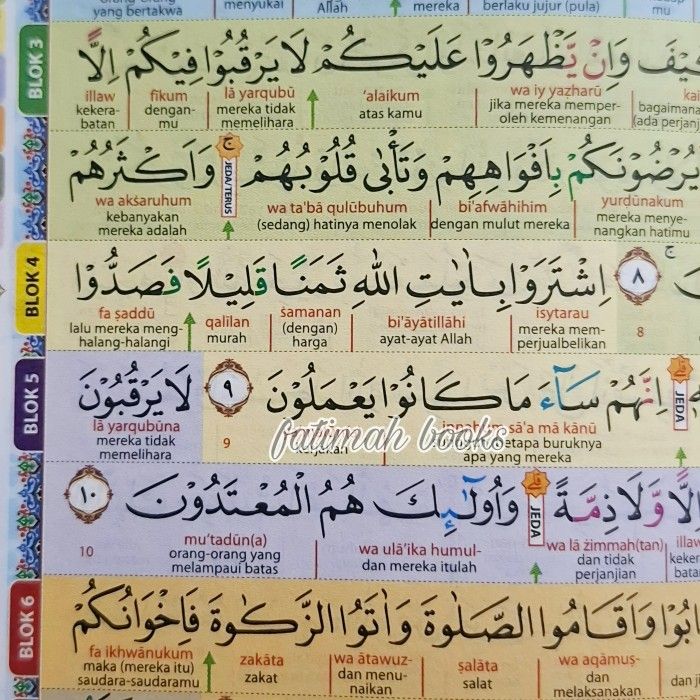 menyukai Allah mereka berlaku jujur (pula)
BLOK 3
كَيْفَ وَاِنْ يَّظْهَرُوْا عَلَيْكُمْ لَا يَرْقُبُوْا فِيْكُمْ اِلًّا
illaw fīkum lā yarqubū ‘alaikum wa iy yaẓharū
kekera- dengan- mereka tidak atas kamu jika mereka memper- bagaimana
batan mu memelihara oleh kemenangan (ada perjanj
يُرْضُوْنَكُمْ بِاَفْوَاهِهِمْ وَتَأْبٰى قُلُوْبُهُمْ ۚ وَاَكْثَرُهُمْ
JEDA/TERUS
wa akṡaruhum wa ta'bā qulūbuhum bi'afwāhihim yurḍūnakum
kebanyakan (sedang) hatinya menolak dengan mulut mereka mereka menye-
mereka adalah nangkan hatimu
BLOK 4
٨ اِشْتَرَوْا بِاٰيٰتِ اللّٰهِ ثَمَنًا قَلِيْلًا فَصَدُّوْا
fa ṣaddū qalīlan ṡamanan bi'āyātillāhi isytarau 8
lalu mereka meng- murah (dengan) ayat-ayat Allah mereka mem-
halang-halangi harga perjualbelikan
BLOK 5
اِنَّهُمْ سَاۤءَ مَا كَانُوْا يَعْمَلُوْنَ ٩ لَا يَرْقُبُوْنَ
JEDA
lā yarqubūna 9 sā'a mā kānū
mereka tidak betapa buruknya
memelihara apa yang mereka
fatimah books
وَّلَا ذِمَّةً ۗ وَاُولٰۤىِٕكَ هُمُ الْمُعْتَدُوْنَ ١٠
JEDA
10 mu‘tadūn(a) wa ulā'ika humul- wa lā żimmah(tan) illaw
orang-orang yang dan mereka itulah dan tidak
melampaui batas perjanjian
BLOK 6
وَاَقَامُوا الصَّلٰوةَ وَاٰتَوُا الزَّكٰوةَ فَاِخْوَانُكُمْ
fa ikhwānukum zakāta wa ātawuz- ṣalāta wa aqāmuṣ-
maka (mereka itu) zakat dan menu- salat dan
saudara-saudaramu naikan melaksanakan